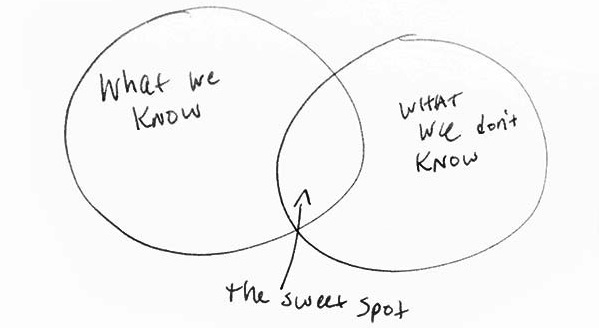 What we
KNOW
WHAT
WE don't
KNOW
the sweet spot